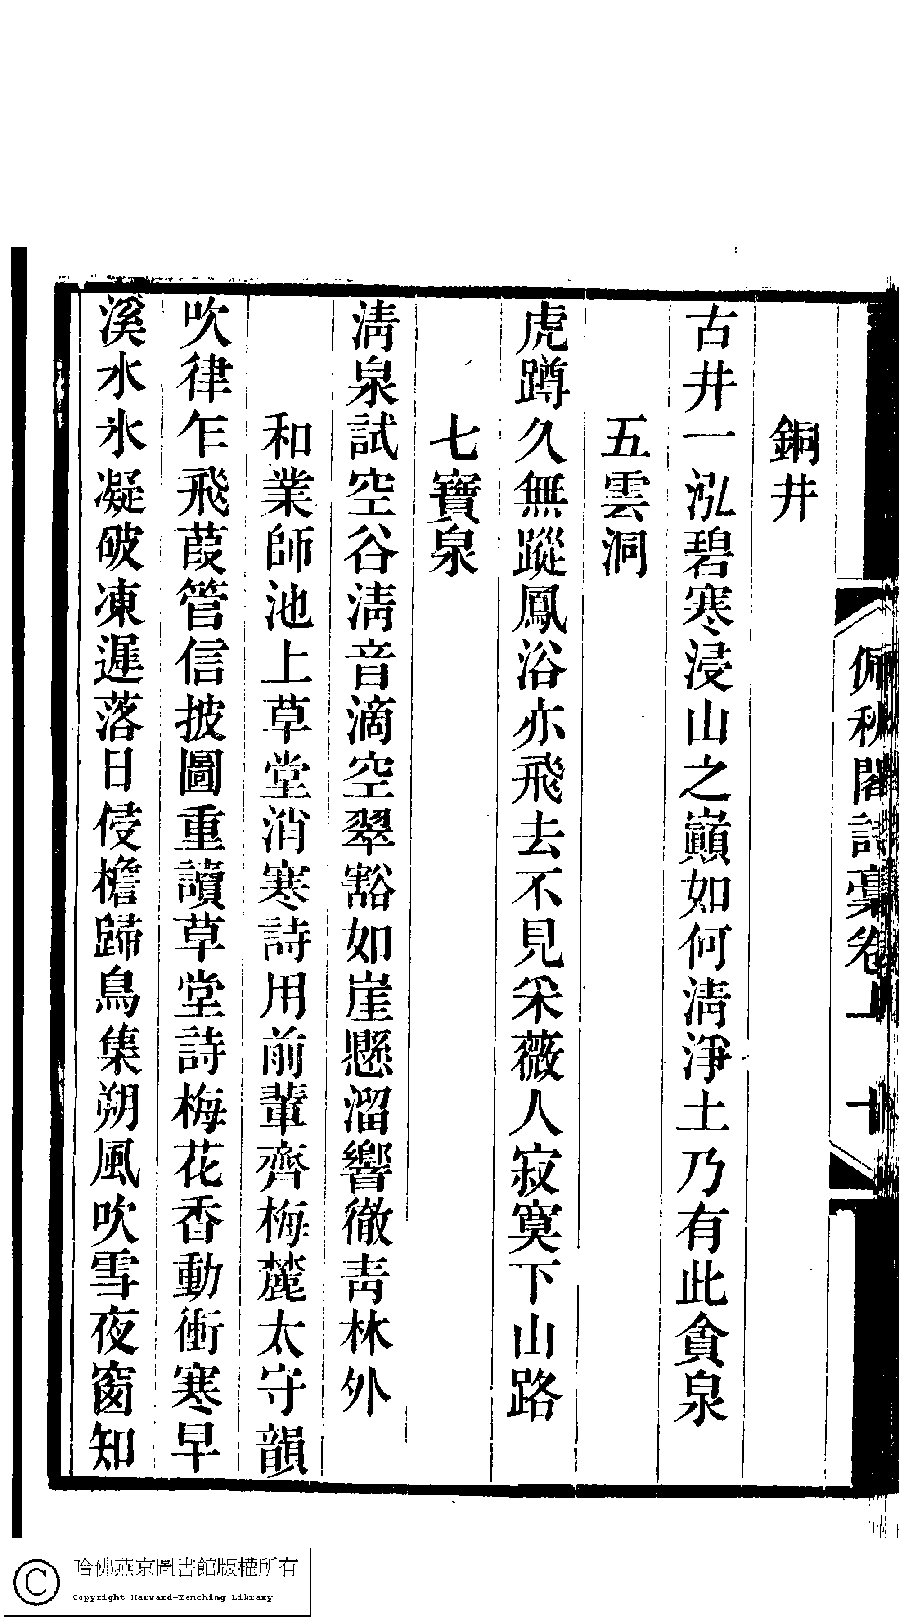 佩秋閣詩稾卷上 十
銅井
古井一泓碧寒浸山之巔如何淸淨土乃有此貪泉
五雲洞
虎蹲久無蹤鳳浴亦飛去不見采薇人寂寞下山路
七寶泉
淸泉試空谷淸音滴空翠豁如崖懸溜響徹靑林外
和業師池上草堂消寒詩用前輩齊梅麓太守韻
吹律乍飛葭管信披圖重讀草堂詩梅花香動衝寒早
溪水氷凝破凍遲落日侵檐歸鳥集朔風吹雪夜窗知
哈佛燕京圖書館版權所有
Copyright Harvard-Yenching Library